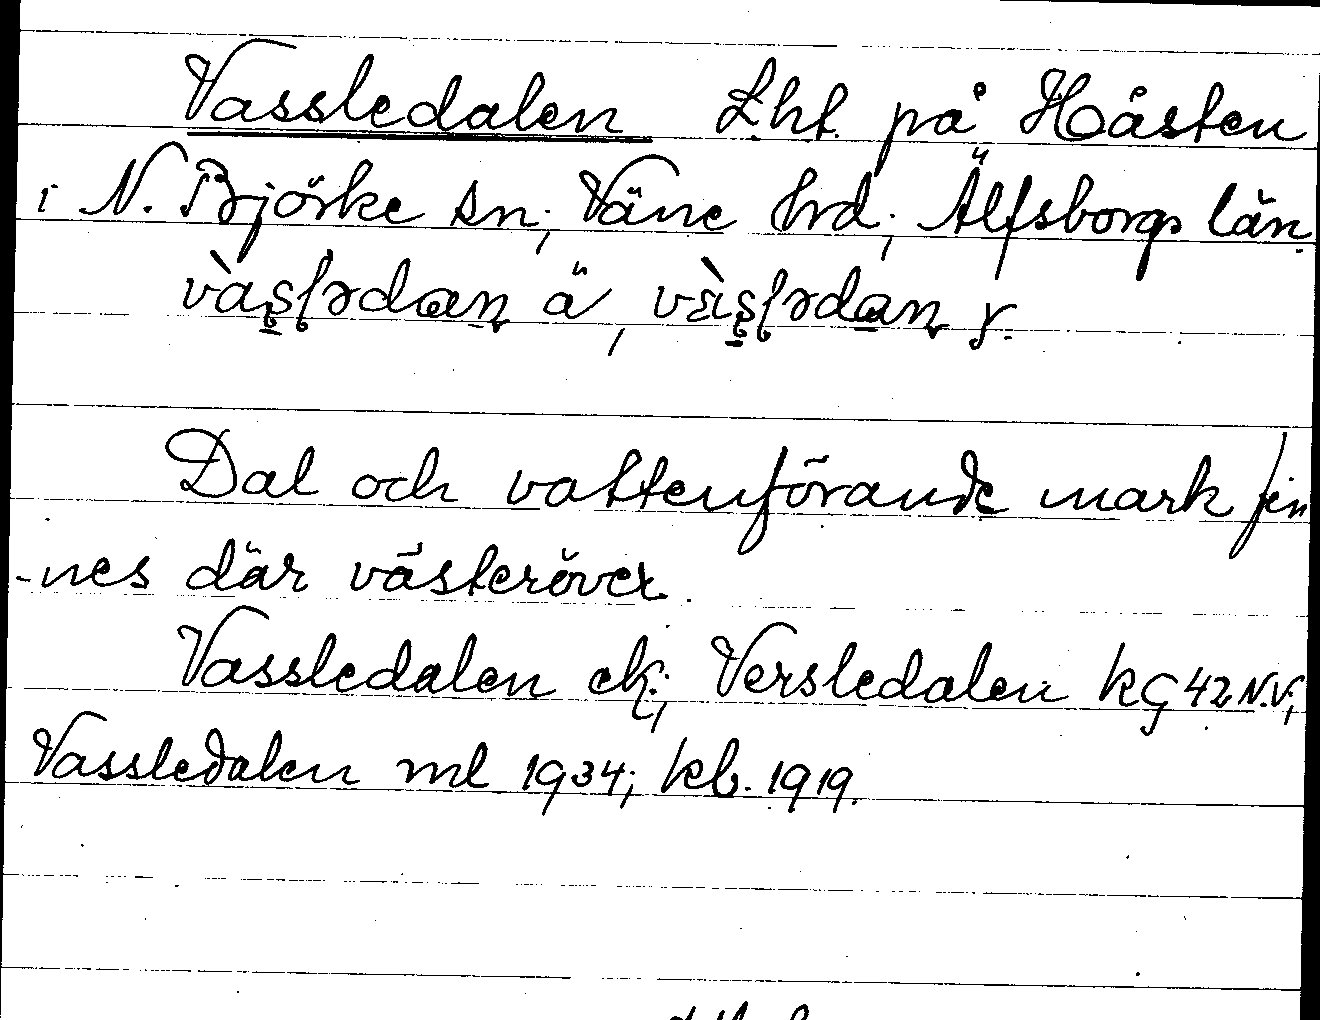 Vassledalen Lht. på Håsten
i N. Björke sn; Väne hrd; Älfsborgs län.
Dal och vattenförande mark fin
-nes där västeröver.
Vassledalen ek.; Versledalen kG 42 N.V;
Vassledalen ml 1934; kb. 1919.